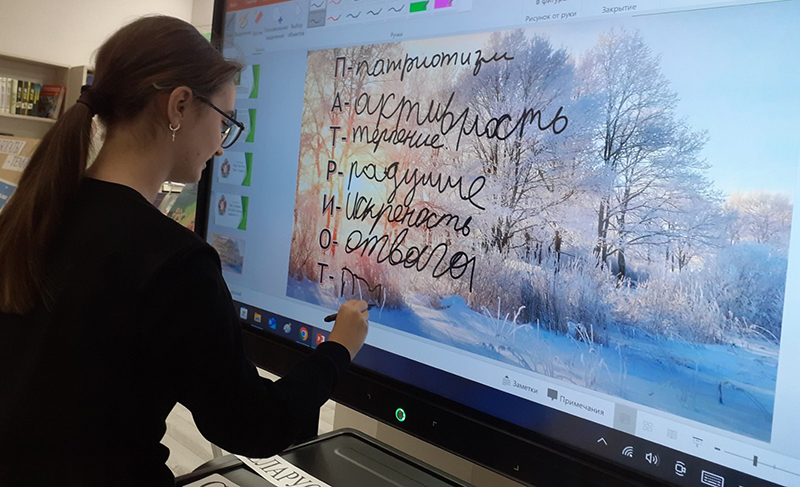 Рисунок от руки
Закрытие
Ручки
П-патриотизм
А-активность
Т-терпение
Р-радушие
И-Искреность
О-отвага
Т-
Заметки
Примечания